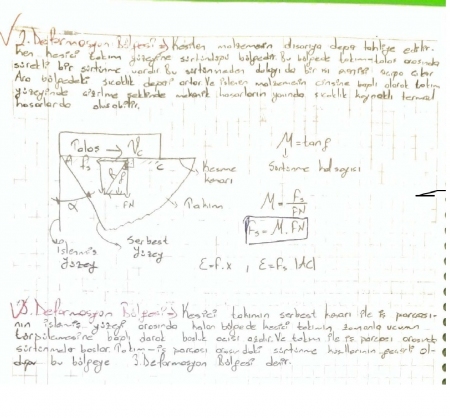 2. Deformasyon Bölgesi → Kesilen malzemenin dışarıya doğru tahliye edilir-
ken kesici takım yüzeyine sürtündüğü bölgedir. Bu bölgede takım-talaş arasında
sürekli bir sürtünme vardır. Bu sürtünmeden dolayı da bir ısı enerjisi açığa çıkar
Ara bölgedeki sıcaklık artar ve malzemenin cinsine bağlı olarak takım
yüzeyinde şeklinde mekanik hasarların yanında sıcaklık kaynaklı termal
hasarlarda oluşabilir.
Talaş → Vc
A fs C
FN
α
Kesme
kenarı
Takım
İşlenmiş
yüzey
Serbest
yüzey
M = tanρ
Sürtünme katsayısı
M = fs / FN
Fs = M. FN
Ɛ = f.x , Ɛ = fs |AC|
3. Deformasyon Bölgesi → Kesici takımın serbest kenarı ile iş parçası-
nın işlenmiş yüzeyi arasında kalan bölgede kesici takımın zamanla ucunun
törpülenmesine bağlı olarak boşluk açısı azalır. Ve takım ile iş parçası arasında
sürtünmeler başlar. Takım - iş parçası arasındaki sürtünme hallerinin geçerli ol-
duğu bu bölgeye 3. Deformasyon Bölgesi denir.